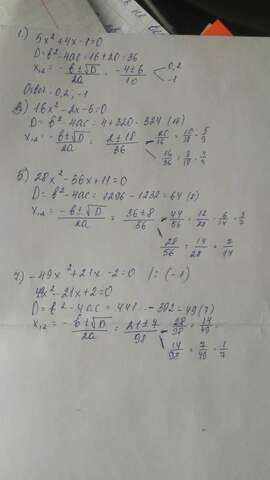 1.) 5x²+4x-1=0
D=b²-4ac=16+20=36
x₁,₂=-b±√D/2a = -4±6/10 0,2 -1
Ответ: 0,2, -1
3) 16x²-2x-5=0
D=b²-4ac=4+320=324 (18)
x₁,₂=-b±√D/2a = 2±18/36 = 20/36 = 10/18 = 5/9
16/36 = 8/18 = 4/9
5) 28x²-36x+11=0
D=b²-4ac=1296-1232=64 (8)
x₁,₂=-b±√D/2a = 36±8/56 = 44/56 = 12/28 = 6/14 = 3/7
28/56 = 14/28 = 7/14
7) -49x²+21x-2=0 /: (-1)
49x²-21x+2=0
D=b²-4ac=441-392=49 (7)
x₁,₂=-b±√D/2a = 21±7/98 = 28/98 = 14/49
14/98 = 7/49 = 1/7